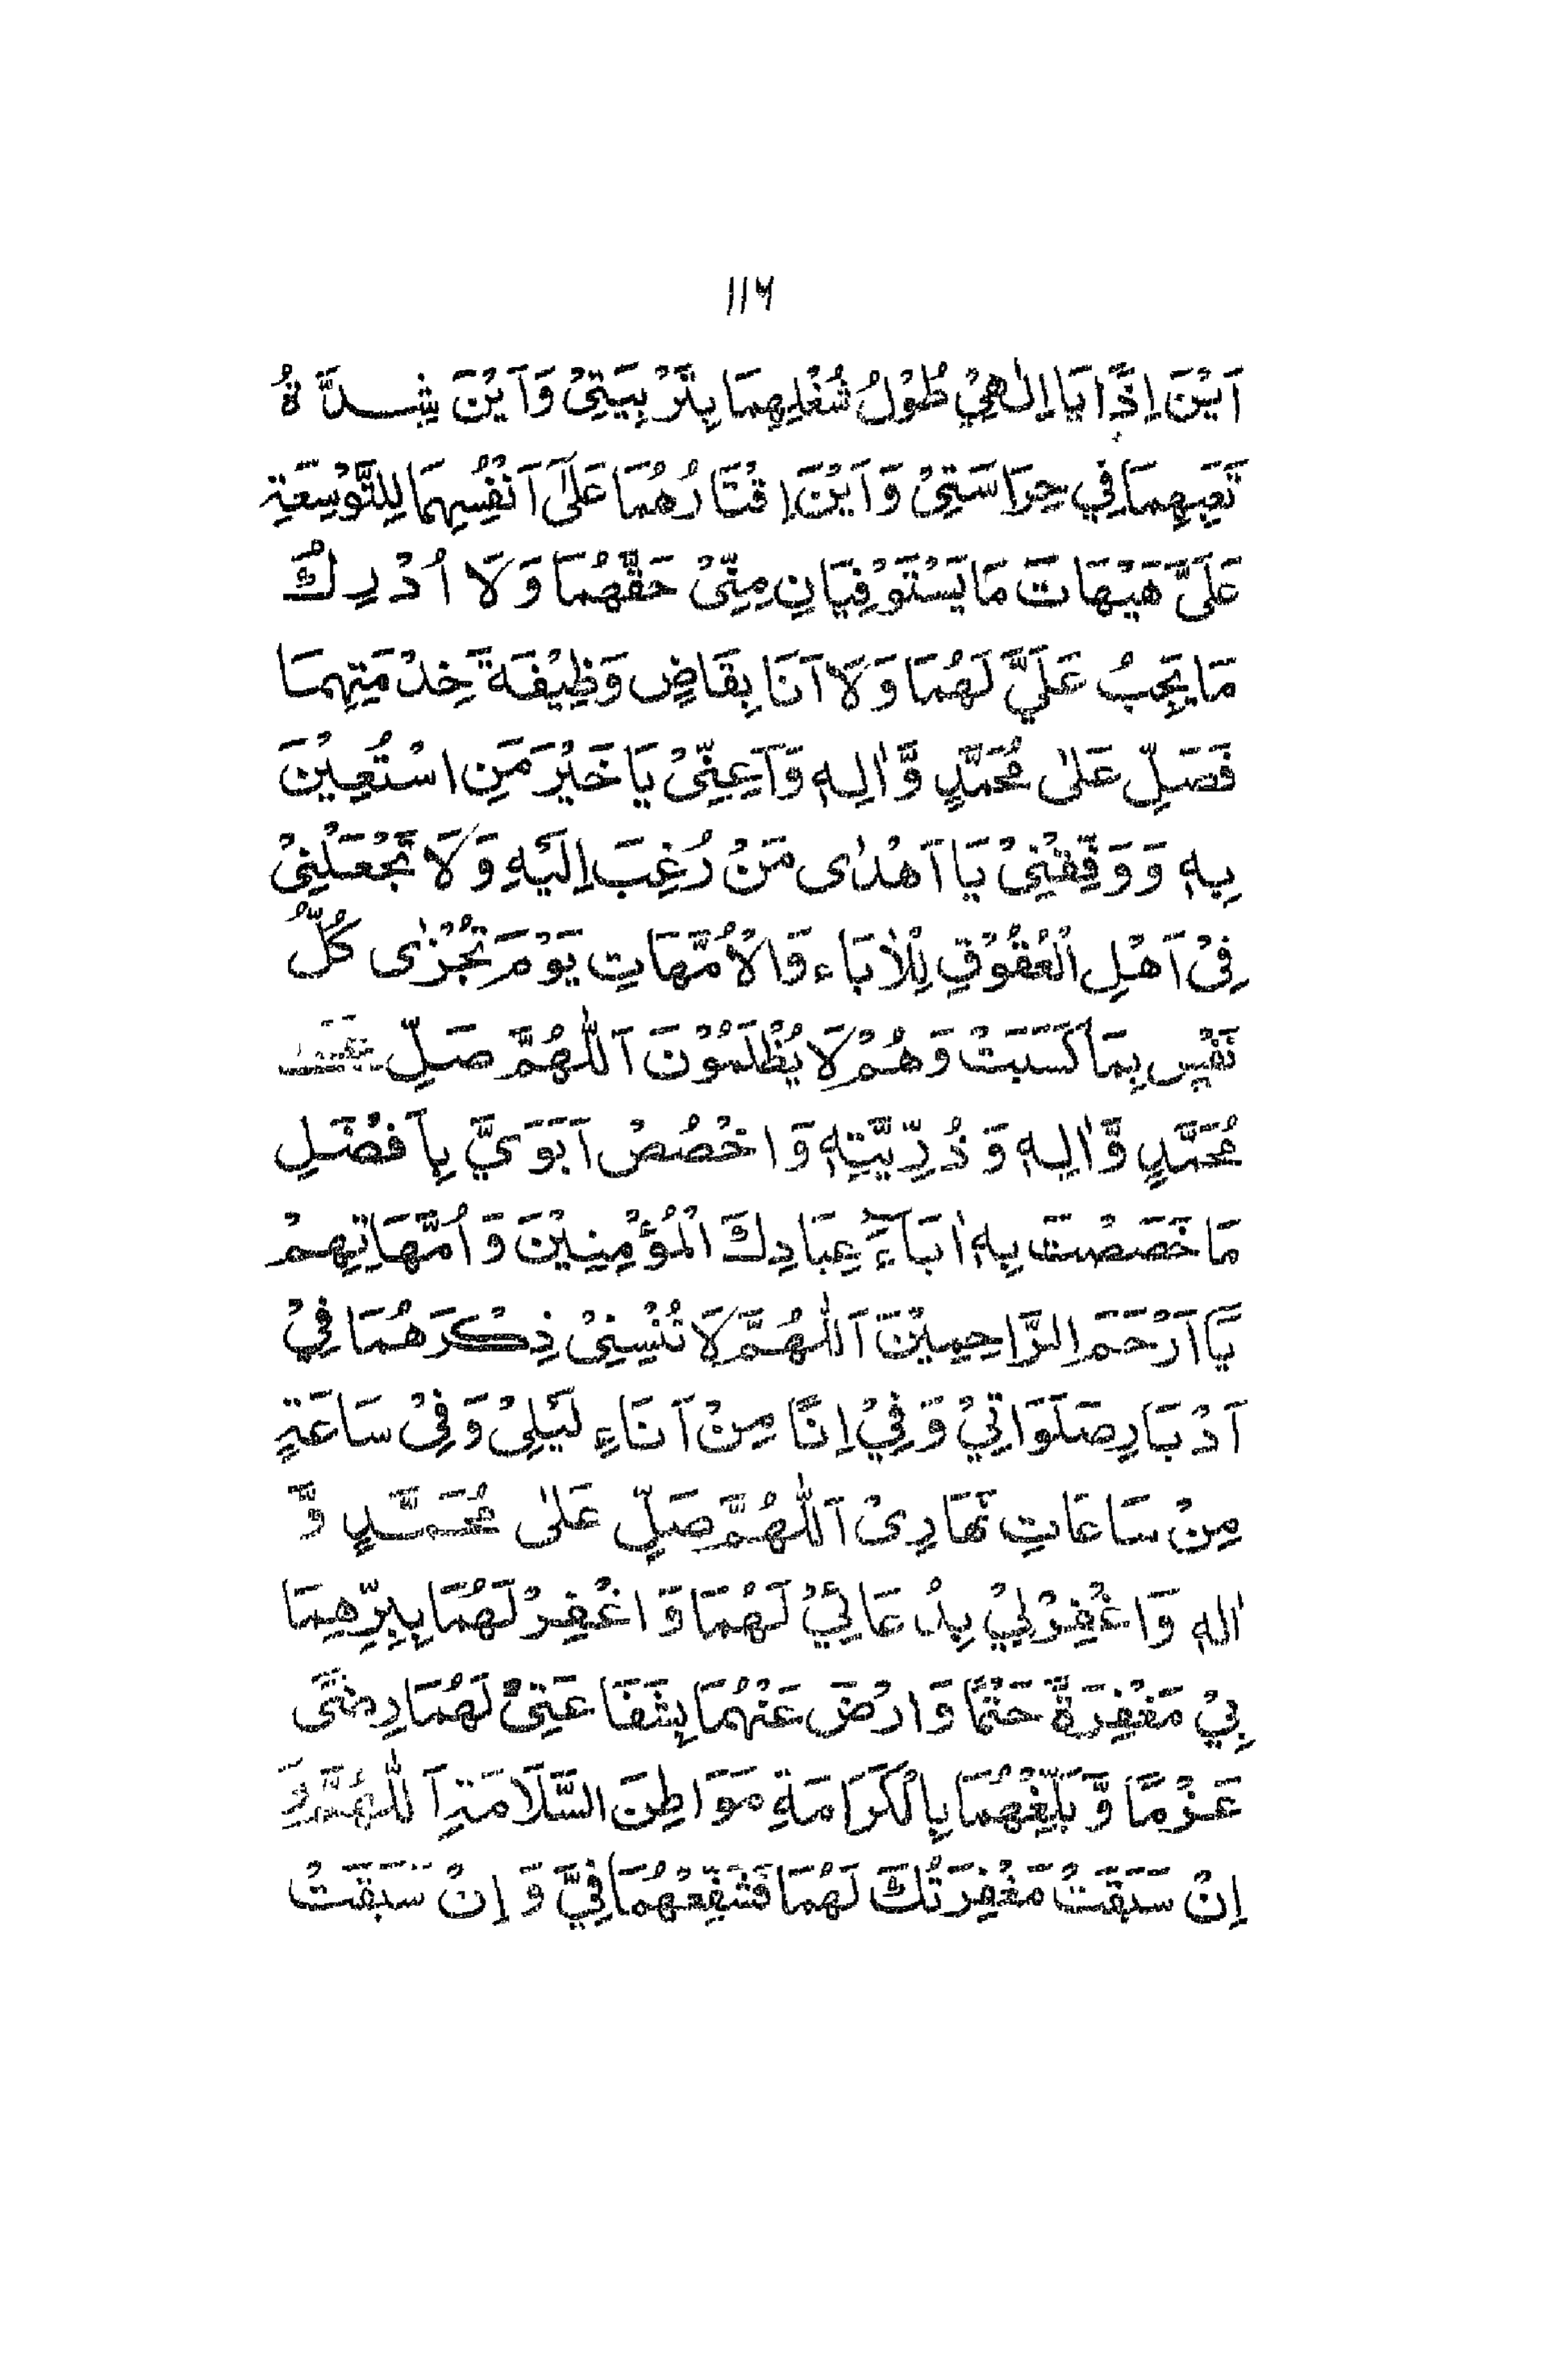 ۱۱۶
اَيْنَ اِذًا يَا اِلٰهِيْ طُوْلُ شُغْلِهِمَا بِتَرْبِيَتِيْ وَاَيْنَ شِدَّةُ
تَعَبِهِمَا فِي حِرَاسَتِيْ وَاَيْنَ اِقْتَارُهُمَا عَلٰى اَنْفُسِهِمَا لِلتَّوْسِعَةِ
عَلَيَّ هَيْهَاتَ مَا يَسْتَوْفِيَانِ مِنِّيْ حَقَّهُمَا وَلَا اُدْرِكُ
مَا يَجِبُ عَلَيَّ لَهُمَا وَلَا اَنَا بِقَاضٍ وَظِيْفَةَ خِدْمَتِهِمَا
فَصَلِّ عَلٰى مُحَمَّدٍ وَّاٰلِهٖ وَاَعِنِّيْ يَا خَيْرَ مَنِ اسْتُعِيْنَ
بِهٖ وَوَفِّقْنِيْ يَا اَهْدٰى مَنْ رُغِبَ اِلَيْهِ وَلَا تَجْعَلْنِيْ
فِيْ اَهْلِ الْعُقُوْقِ لِلْاٰبَاء وَالْاُمَّهَاتِ يَوْمَ تُجْزٰى كُلُّ
نَفْسٍ بِمَا كَسَبَتْ وَهُمْ لَا يُظْلَمُوْنَ اَللّٰهُمَّ صَلِّ
مُحَمَّدٍ وَّاٰلِهٖ وَذُرِّيَّتِهٖ وَاخْصُصْ اَبَوَيَّ بِاَفْضَلِ
مَا خَصَصْتَ بِهٖ اٰبَآءَ عِبَادِكَ الْمُؤْمِنِيْنَ وَاُمَّهَاتِهِمْ
يَّا اَرْحَمَ الرَّاحِمِيْنَ اَللّٰهُمَّ لَا تُنْسِنِيْ ذِكْرَهُمَا فِيْ
اَدْبَارِ صَلَوَاتِيْ وَفِيْ اِنًا مِنْ اَنَاءِ لَيْلِيْ وَفِيْ سَاعَةٍ
مِنْ سَاعَاتِ نَهَارِيْ اَللّٰهُمَّ صَلِّ عَلٰى مُحَمَّدٍ وَّ
اٰلهٖ وَاغْفِرْلِيْ بِدُعَائِيْ لَهُمَا وَاغْفِرْ لَهُمَا بِبِرِّهِمَا
بِيْ مَغْفِرَةً حَتْمًا وَارْضَ عَنْهُمَا بِشَفَاعَتِيْ لَهُمَا رِضًى
عَزْمًا وَّبَلِّغْهُمَا بِالْكَرَامَةِ مَوَاطِنَ السَّلَامَةِ اَللّٰهُمَّ وَ
اِنْ سَبَقَتْ مَغْفِرَتُكَ لَهُمَا فَشَفِّعْهُمَا فِيَّ وَاِنْ سَبَقَتْ